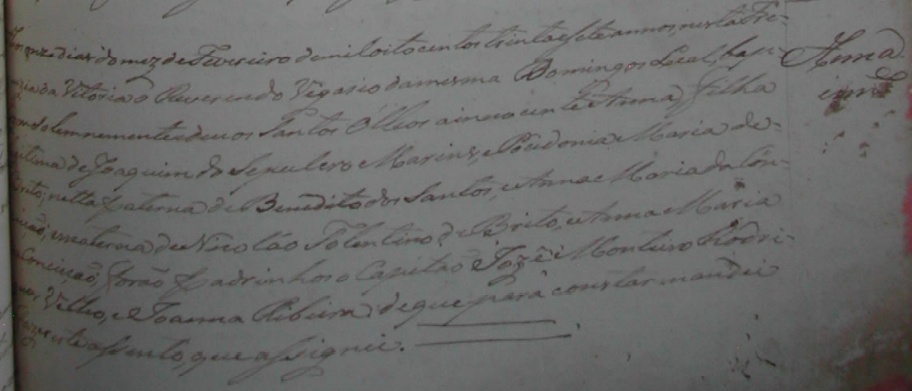 quinze dias do mez de Fevereiro de mil oito centos trinta e sete annos nesta Fre-
da Vitoria o Reverendo Vigario da mesma Domingos Leal, bap-
solemnemente deu os Santos Olleos a innocente Anna, filha
de Joaquim do Sepulcro Marins, e Poudonia Maria de
Brito, netta paterna de Benedito dos Santos, e Anna Maria da Con-
e materna de Nicoláo Tolentino de Brito, e Anna Maria
Conceição, forão padrinhos o Capitaõ Jozê Monteiro Rodri-
Velho, e Joanna Ribeira, de que para constar mandei
este assento, que assignei.
Anna